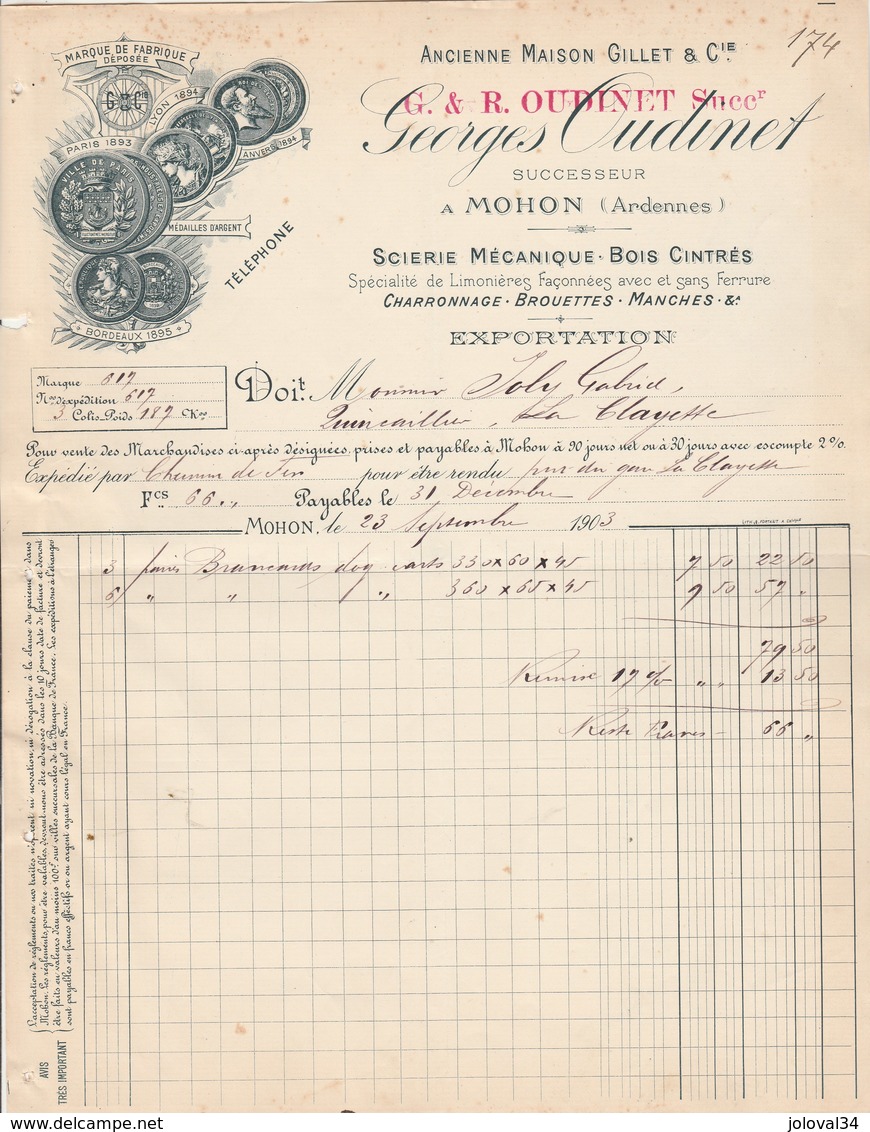 174
MARQUE DE FABRIQUE
DÉPOSÉE
G & Cie
LYON 1894
PARIS 1893
ANVERS 1894
VILLE DE PARIS
MÉDAILLES D'ARGENT
BORDEAUX 1895
TÉLÉPHONE
ANCIENNE MAISON GILLET & CIE
G. & R. OUDINET Succr
Georges Oudinet
SUCCESSEUR
A MOHON (Ardennes)
SCIERIE MÉCANIQUE · BOIS CINTRÉS
Spécialité de Limonières Façonnées avec et sans Ferrure
CHARRONNAGE · BROUETTES · MANCHES · &a
EXPORTATION
Marque 617
Nos d'expédition 617
3 Colis-Poids 187 Kos
Doit: Monsieur Joly Gabriel,
Quincaillier, La Clayette
Pour vente des Marchandises ci-après désignées, prises et payables à Mohon à 90 jours net ou à 30 jours avec escompte 2%.
Expédié par Chemin de Fer pour être rendu en gare La Clayette
Fcs 66 " Payables le 31 Decembre
MOHON, le 23 Septembre 1903
3 paires Brancards dog carts 330 x 60 x 45 7 50 22 50
6 " " " 360 x 65 x 45 9 50 57 "
79 50
Remise 17 % " " 13 50
Reste Francs 66 "
AVIS TRÈS IMPORTANT
L'acceptation de règlements ou nos traites n'opèrent ni novation, ni dérogation à la clause du paiemt dans
Mohon. Les règlements, pour être valables, devront nous être adressés dans les 10 jours date de facture et devront
être faits en valeurs d'au moins 100f sur villes succursales de la Banque de France. Les expéditions à l'étranger
sont payables en francs effectifs or ou argent ayant cours légal en France.
joloval34